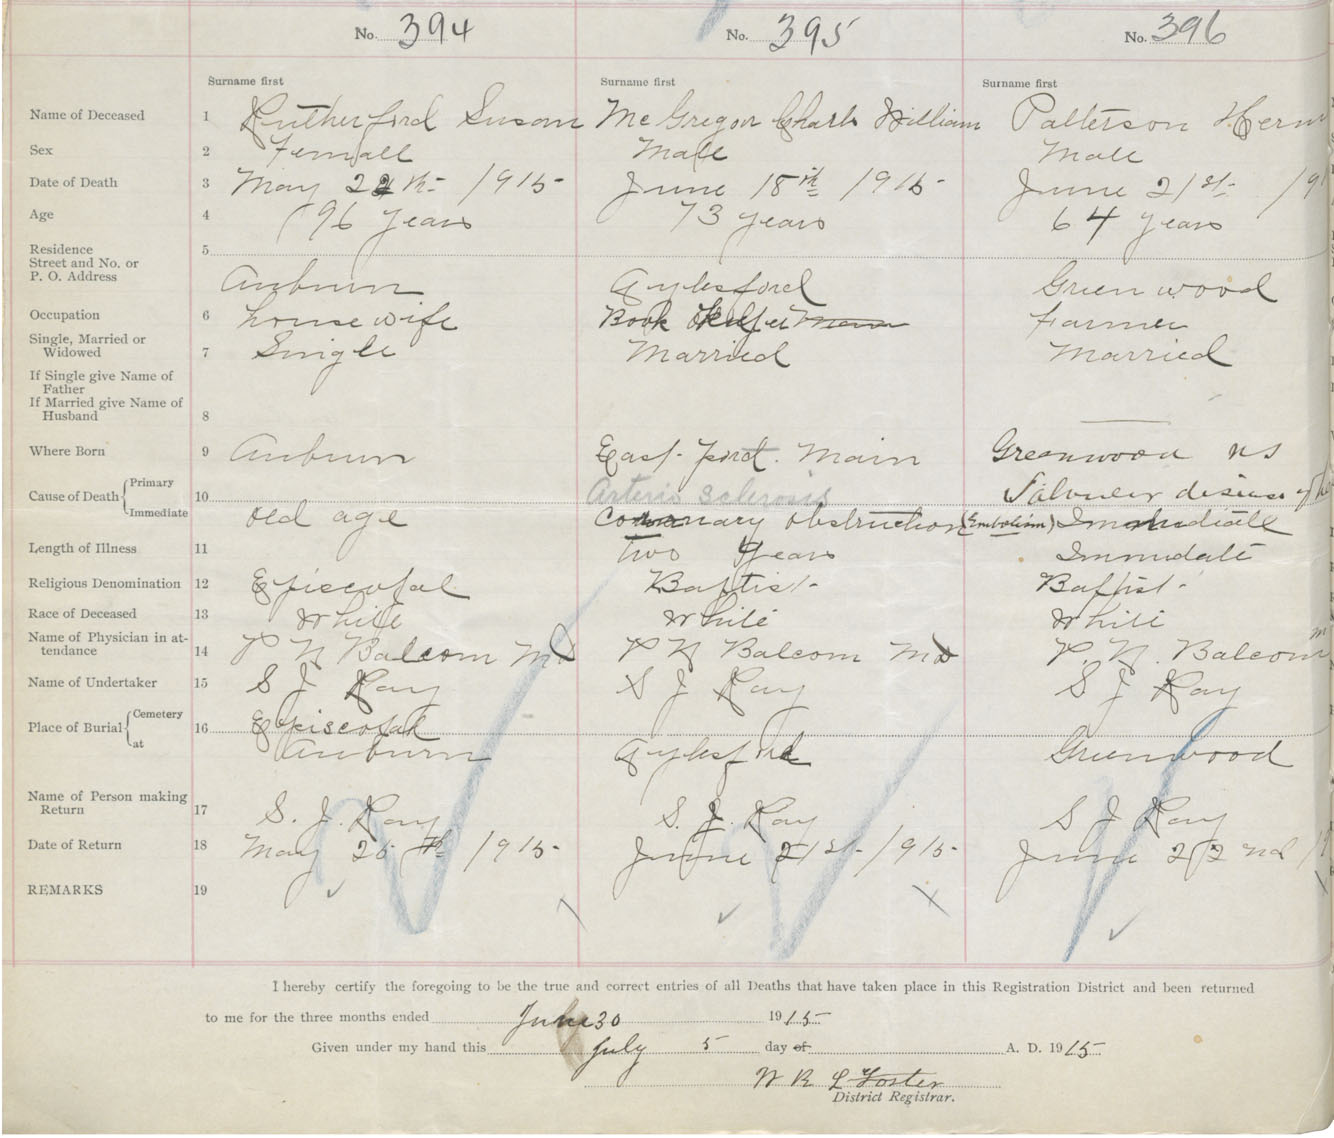 No. 394 No. 395 No. 396
Surname first Surname first Surname first
Name of Deceased 1 Rutherford Susan McGregor Charls William Patterson Herm
Sex 2 Femall Male Male
Date of Death 3 May 22th 1915 June 18th 1915 June 21st 19
Age 4 96 years 73 years 64 years
Residence 5
Street and No. or
P. O. Address
Auburn Aylesford Greenwood
Occupation 6 housewife Book Farmer
Single, Married or
Widowed 7 Single Married Married
If Single give Name of
Father
If Married give Name of
Husband 8
Where Born 9 Auburn East port. Main Greenwood NS
Cause of Death { Primary 10 Arterio Sclerosis Valvuler disease of he
Immediate old age Coronary obstruction (Embolism) Immediate
Length of Illness 11 two Years Immudate
Religious Denomination 12 Episcopal Baptist Baptist
Race of Deceased 13 White White White
Name of Physician in at-
tendance 14 P N Balcom MD P N Balcom MD P. N. Balcom M
Name of Undertaker 15 S J Ray S J Ray S J Ray
Place of Burial { Cemetery 16 Episcopal
at Auburn Aylesford Greenwood
Name of Person making
Return 17 S. J. Ray S. J. Ray S J Ray
Date of Return 18 May 25th 1915 June 21st 1915 June 22nd 19
REMARKS 19
I hereby certify the foregoing to be the true and correct entries of all Deaths that have taken place in this Registration District and been returned
to me for the three months ended June 30 1915
Given under my hand this July 5 day of A. D. 1915
W R L Foster
District Registrar.